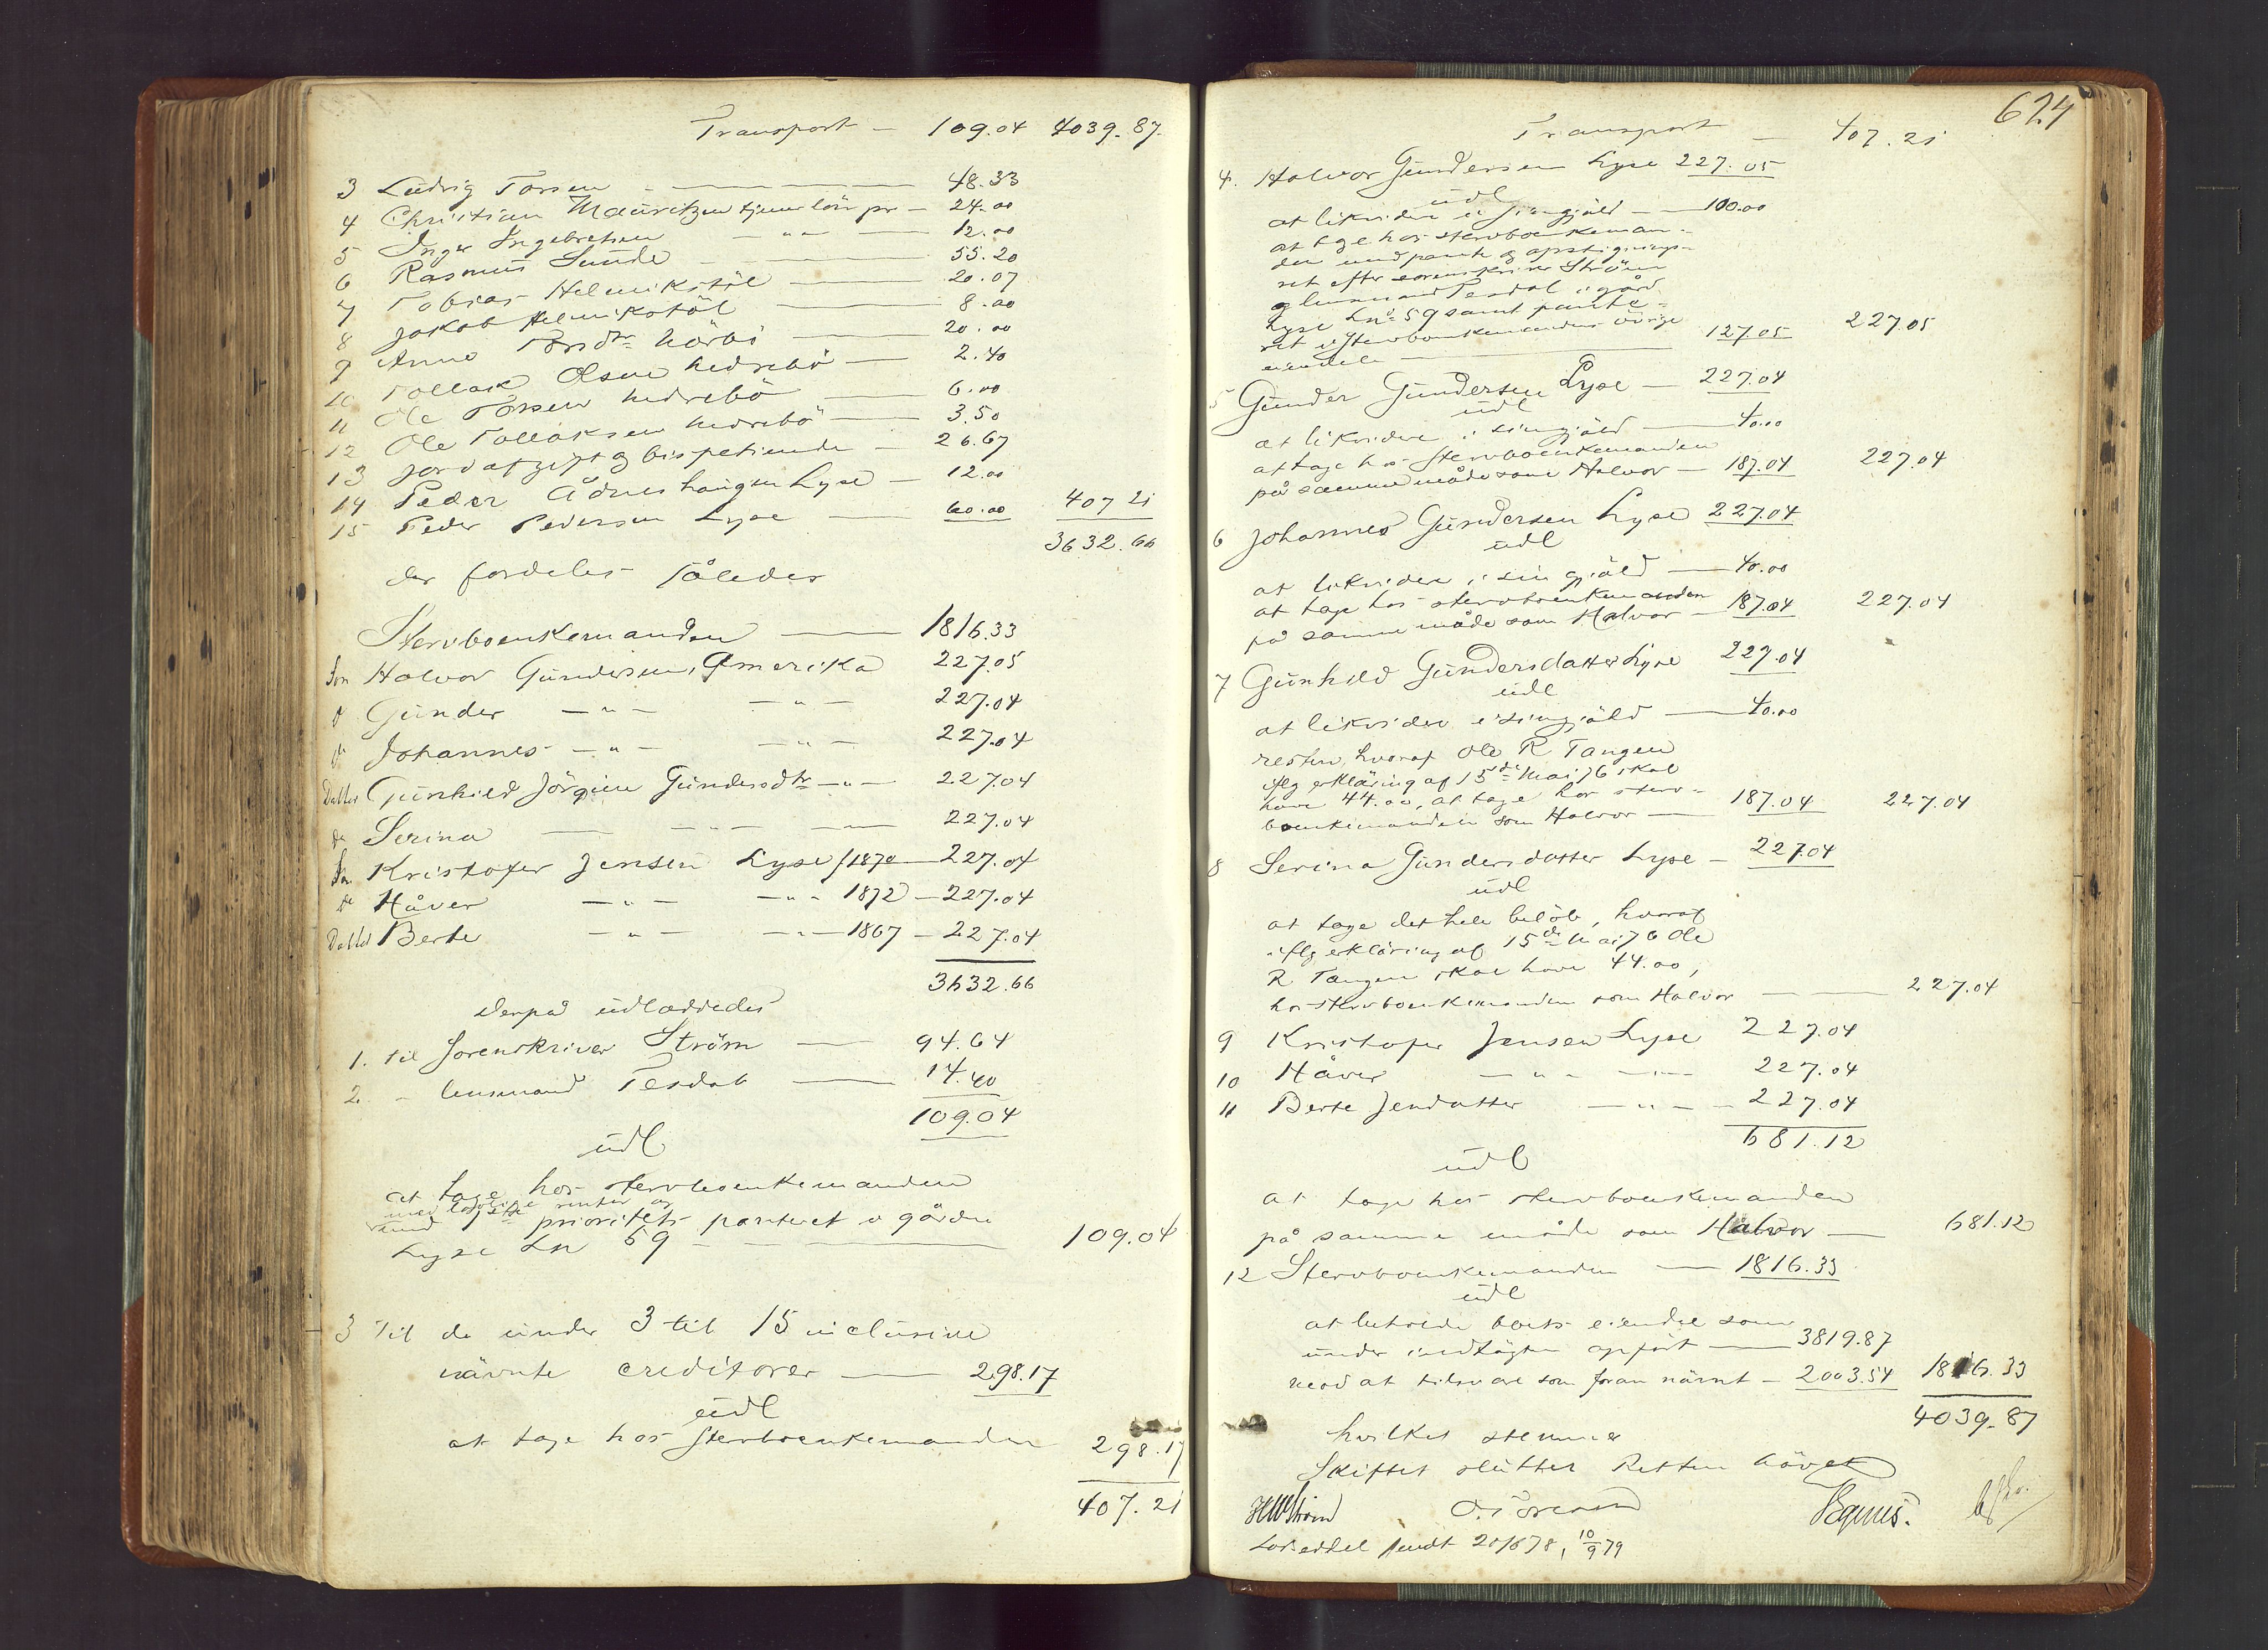 Transport — 109.04 4039.87
3 Ludvig Torsen — 48.33
4 Christian Mauritzen tjenerlön pr — 24.00
5 Inger Ingebretsen — " — 12.00
6 Rasmus Sunde — 55.20
7 Tobias Helmikstöl — 20.07
8 Jakob Helmikstöl — 8.00
9 Anne Torsdtr — 20.00
10 Tollak Olsen Nedrebö — 2.40
11 Ole Torsen Nedrebö — 6.00
12 Ole Tollaksen Nedrebö — 3.50
13 Jordafgift og bispetiende — 26.67
14 Peder Ådneshaugen Lyse — 12.00
15 Peder Pedersen Lyse — 60.00 407 21
3632.66
der fordeles således
Stervboenkemanden — 1816.33
Søn Halvor Gundersen, Amerika 227.05
do Gunder — " — — " — 227.04
do Johannes — " — — " — 227.04
Datter Gunhild Jörgine Gundersdtr — " — 227.04
do Serina — — " — — 227.04
Søn Kristofer Jensen Lyse f 1870 — 227.04
do Håver — " — — " — 1872 — 227.04
Datter Berte — " — — " — 1867 — 227.04
3632.66
Derpå udlagdes
1. til Sorenskriver Ström — 94.64
2. - lensmand Tesdal — 14.40
109.04
udl
at tage hos stervboenkemanden
med lovlige renter og
med 1ste prioritets panteret i gården
Lyse Ln 59 — 109.04
3 Til de under 3 til 15 inclusive
nävnte creditorer — 298.17
udl
at tage hos Stervboenkemanden 298.17
407.21
624
Transport — 407.21
4. Halvor Gundersen Lyse 227.05
udl
at likvidere i sin gjäld — 100.00
at tage hos stervboenkeman-
den med pante og opsigelses-
ret efter sorenskriver Ström
og lensmand Tesdal i gård
Lyse Ln 59 samt pante-
ret i stervboenkemandens övrige
eiendele — 127.05 227.05
5 Gunder Gundersen Lyse — 227.04
udl
at likvidere i sin gjäld — 40.00
at tage hos Stervboenkemanden
på samme måde som Halvor — 187.04 227.04
6 Johannes Gundersen Lyse 227.04
udl
at likvidere i sin gjäld — 40.00
at tage hos stervboenkemanden
på samme måde som Halvor — 187.04 227.04
7 Gunhild Gundersdatter Lyse 227.04
udl
at likvidere i sin gjäld — 40.00
resten, hvoraf Ole R Tangen
iflg erkläring af 15de Mai 76 skal
have 44.00, at tage hos sterv-
boenkemanden som Halvor — 187.04 227.04
8 Serina Gundersdatter Lyse — 227.04
udl
at tage det hele belöb, hvoraf
iflg erkläring af 15de Mai 76 Ole
R Tangen skal have 44.00,
hos stervboenkemanden som Halvor — 227.04
9 Kristofer Jensen Lyse 227.04
10 Håver — " — — " — 227.04
11 Berte Jensdatter — " — 227.04
681.12
udl
at tage hos stervboenkemanden
på samme måde som Halvor — 681.12
12 Stervboenkemanden — 1816.33
udl
at beholde boets eiendele som
under indtägten opfört — 3819.87
mod at tilsvare som foran nävnt — 2003.54 1816.33
4039.87
hvilket stemmer
Skiftet sluttet Retten hävet
HWStröm
Lodseddel sendt 20/6 78, 10/9 79